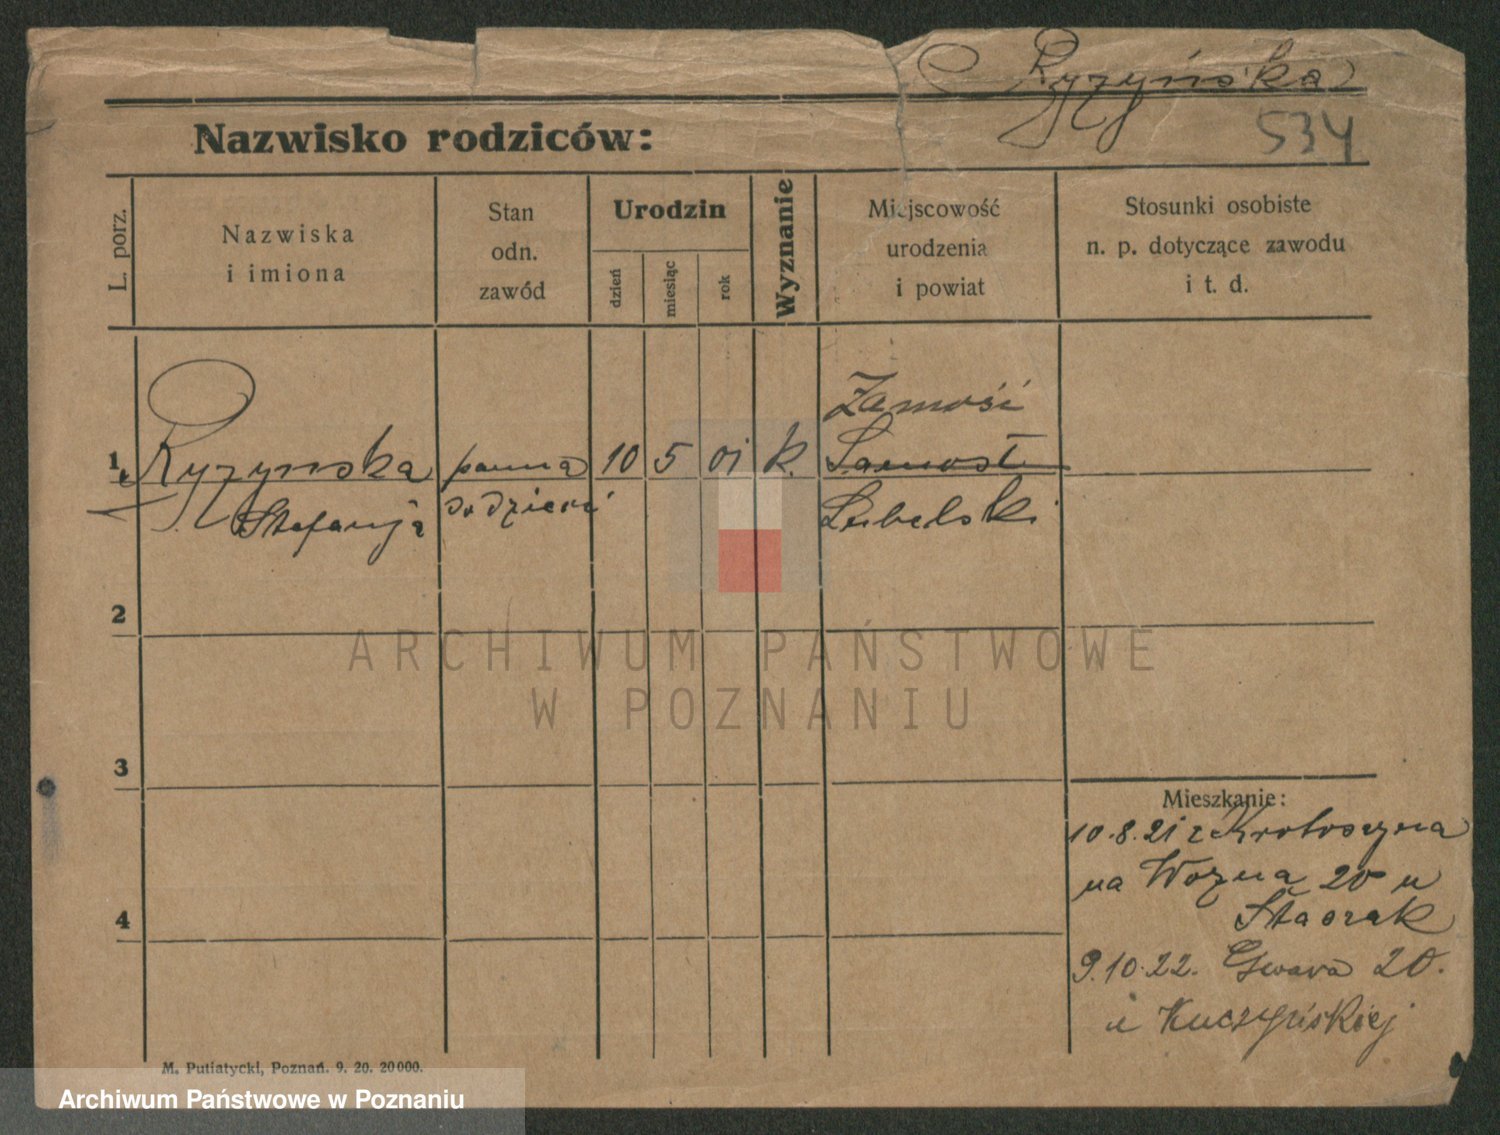 Ryzyńska
534
Nazwisko rodziców:
L. porz.
Nazwiska
i imiona
Stan
odn.
zawód
Urodzin
dzień
miesiąc
rok
Wyznanie
Miejscowość
urodzenia
i powiat
Stosunki osobiste
n. p. dotyczące zawodu
i t. d.
Zamość
1. Ryzynska panna 10 5 01 k. Samost
Stefanja Lubelski
2
ARCHIWUM PAŃSTWOWE
W POZNANIU
3
Mieszkanie:
10.8.21 z Krotoszyna
na Wozna 20 u
4
9.10.22. 20.
u Kuczyńskiej
M. Putiatycki, Poznań. 9. 20. 20000.
Archiwum Państwowe w Poznaniu